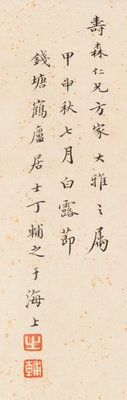 壽森仁兄方家大雅之屬
甲申秋七月白露節
錢塘鶴廬居士丁輔之于海上
輔之